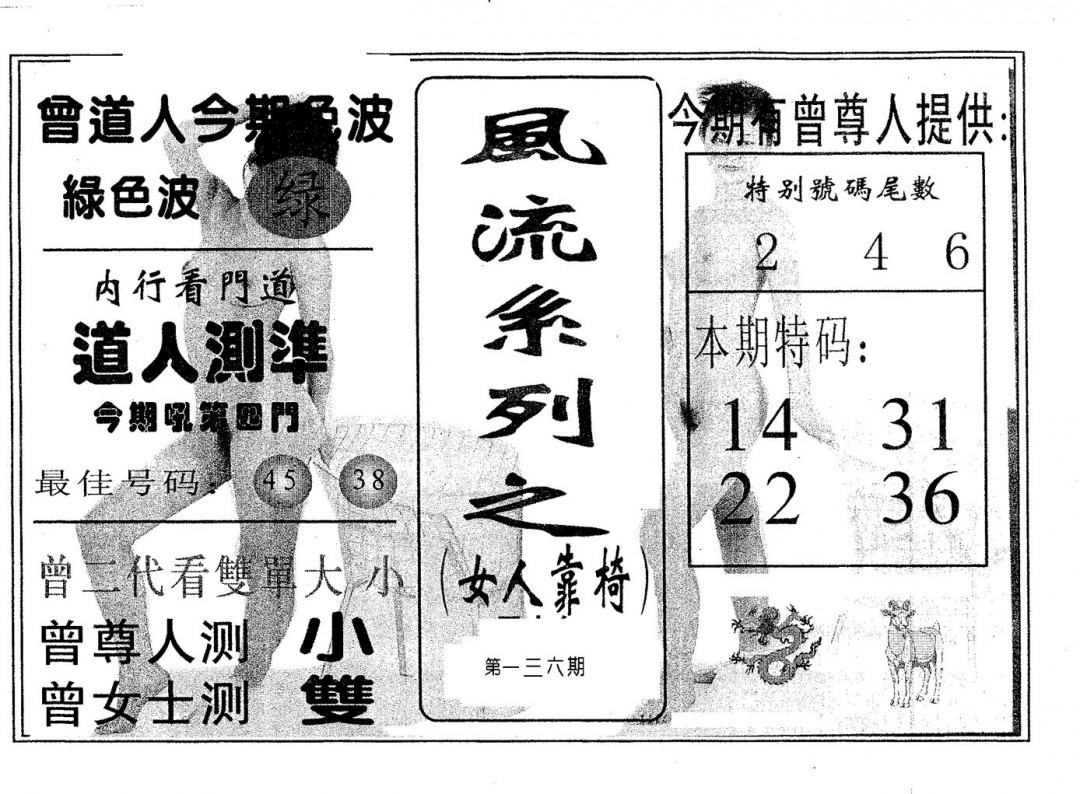 曾道人今期色波
綠色波 绿
内行看門道
道人測準
今期吼第四門
最佳号码: 45 38
曾二代看雙單大小
曾尊人测 小
曾女士测 雙
風流系列之
(女人靠椅)
第一三六期
今期有曾尊人提供:
特别號碼尾數
2 4 6
本期特码:
14 31
22 36